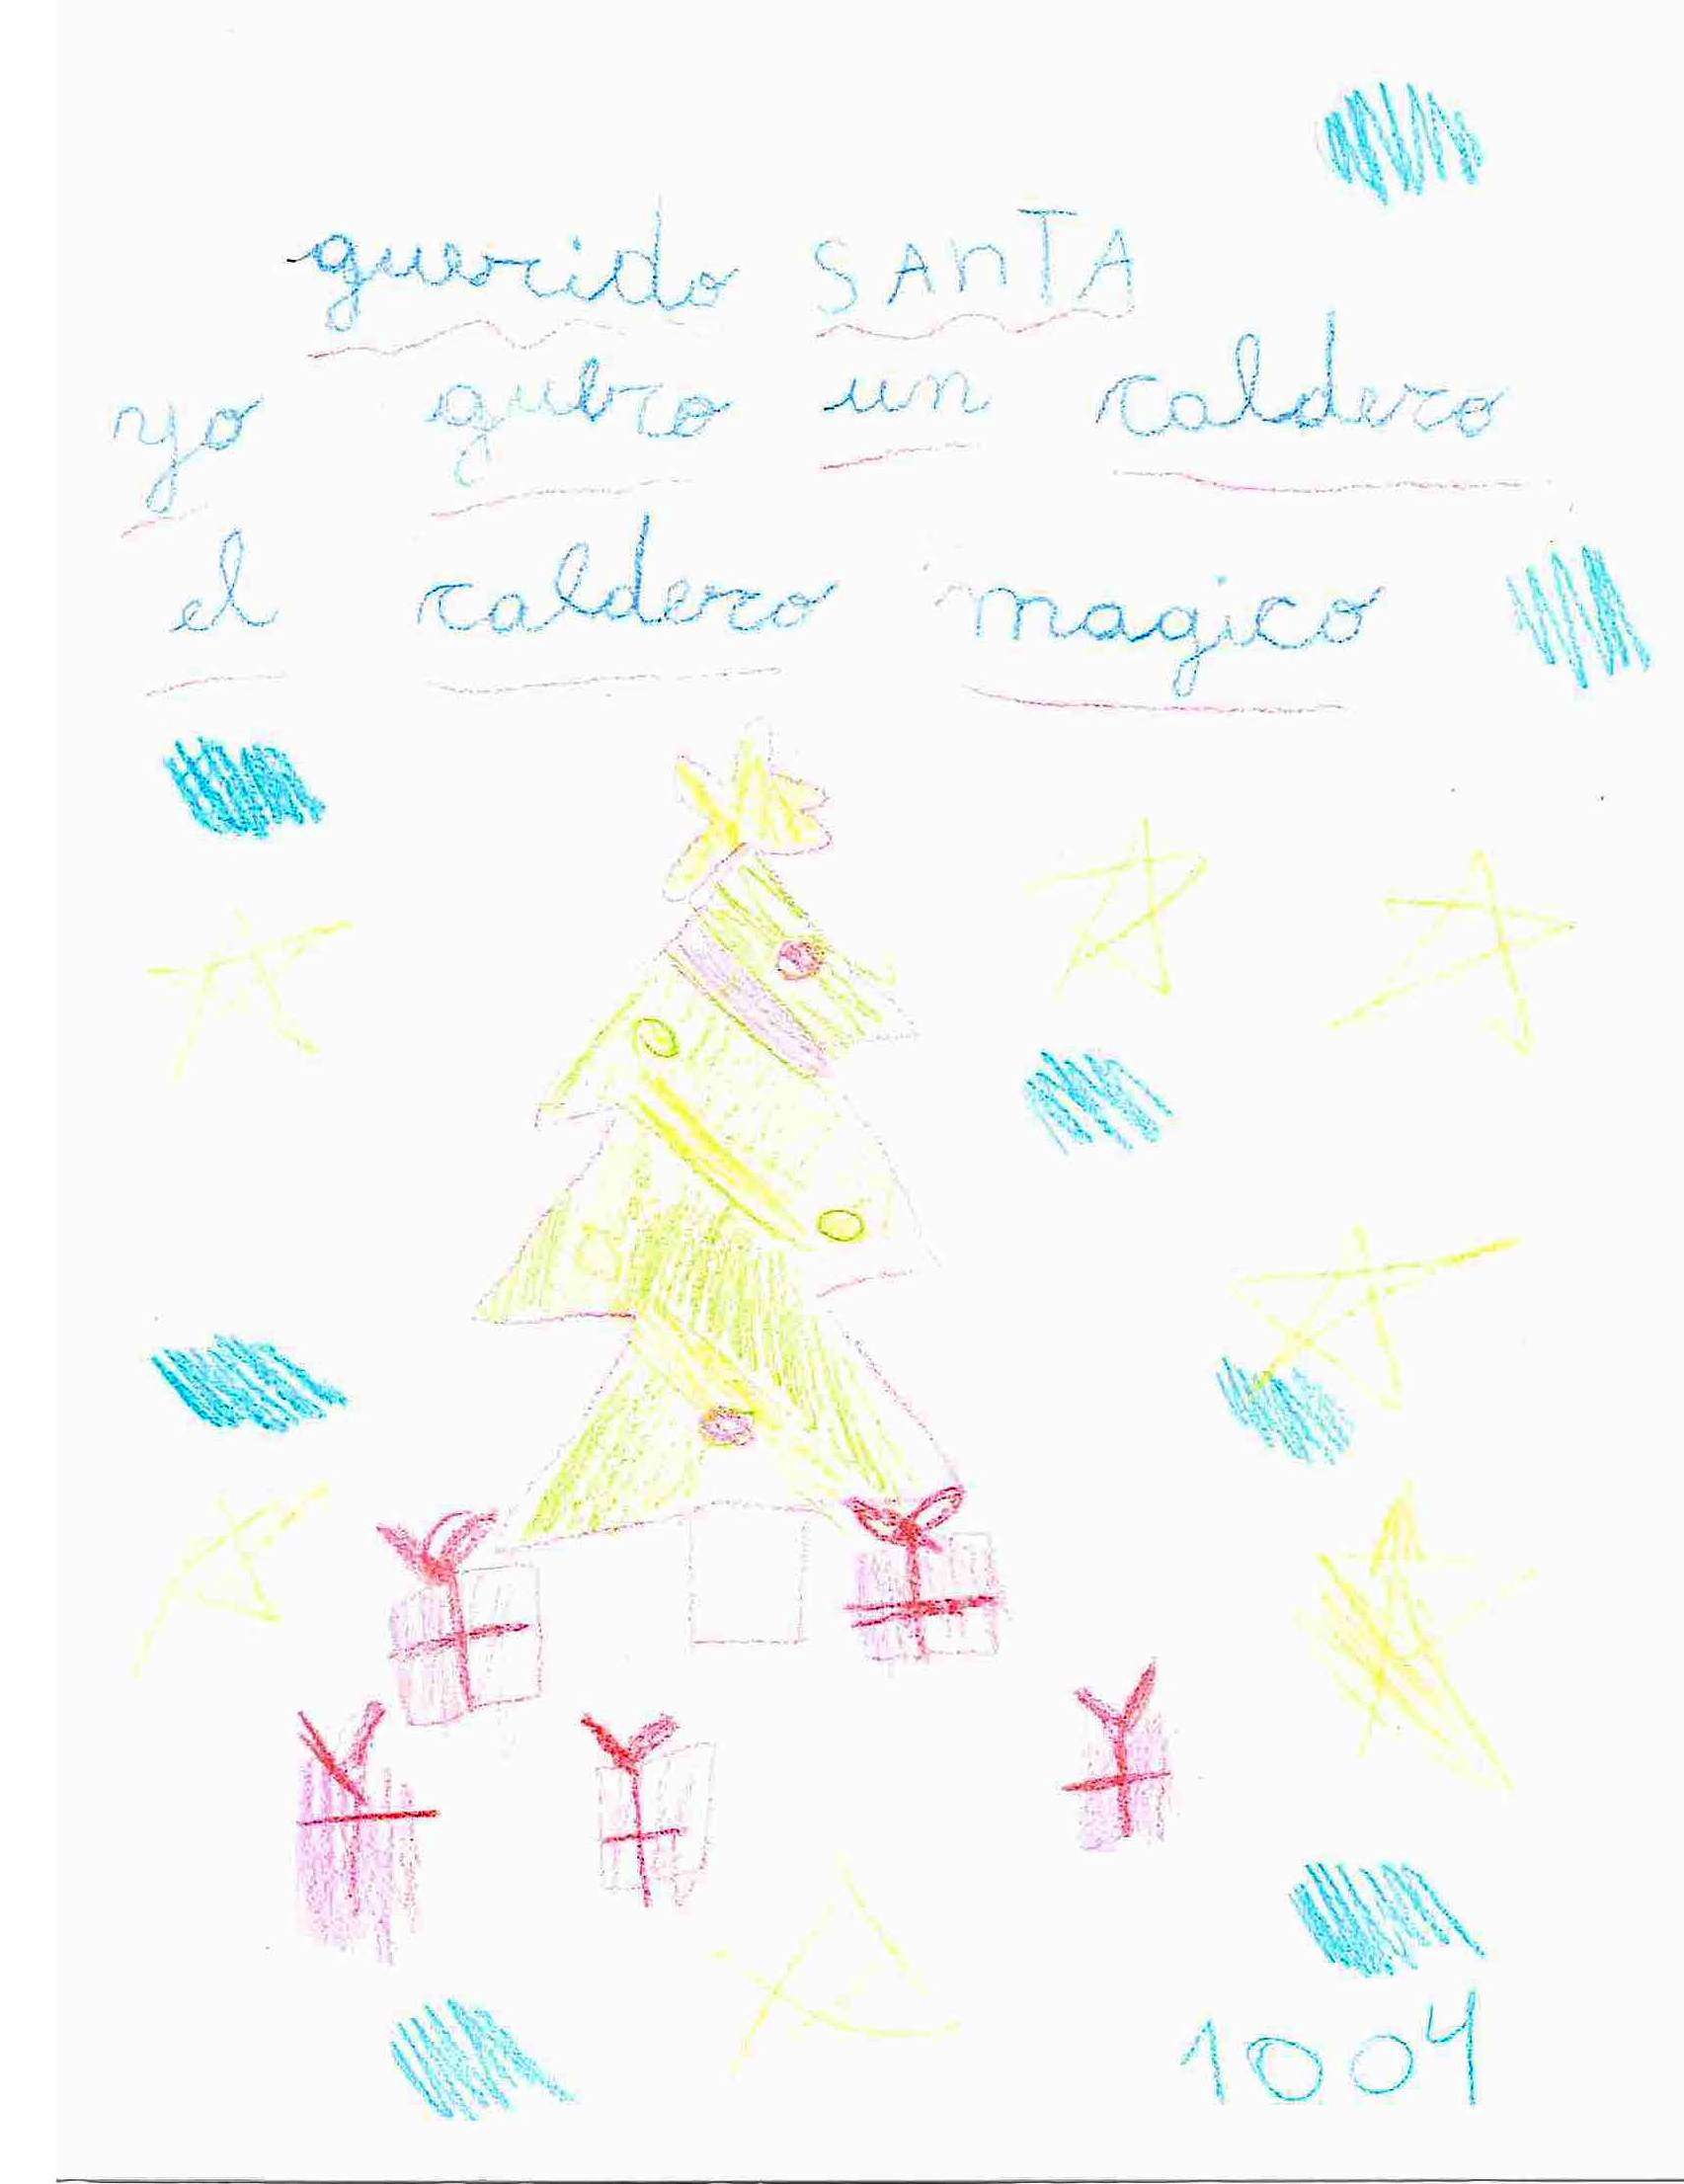 querido SANTA
yo qubro un caldero
el caldero magico
1004